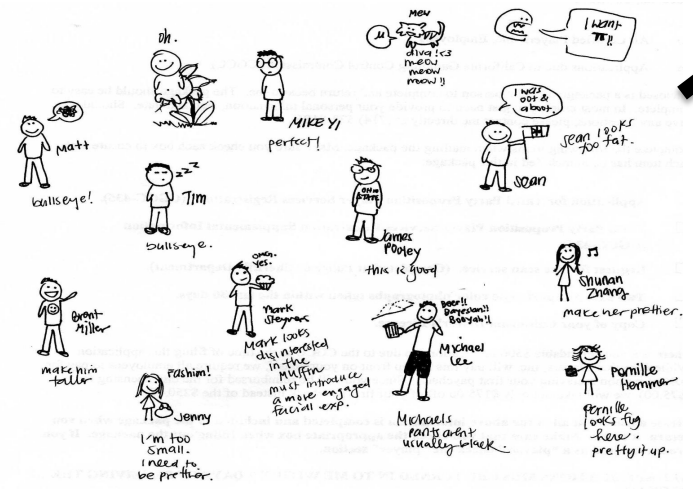 oh.
mew
μ
diva! <3
meow
meow
meow!!
I want
π!!
MIKEY!
perfect!
I was
oot &
aboot.
sean looks
too fat.
sean
Matt
bullseye!
zzz
Tim
bullseye.
OHIO
STATE
James
Pooley
this is good
Shunan
Zhang
make her prettier.
Brent
Miller
make him
taller
OMG.
yes.
Mark
Steyvers
Mark looks
disinterested
in the
muffin
must introduce
a more engaged
facial exp.
Beer!!
Bayesian!!
Booyah!!
Michael
Lee
Michaels
pants arent
usually black.
Pernille
Hemmer
Pernille
looks fug
here.
pretty it up.
Fashun!
Jenny
I'm too
small.
I need to
be prettier.